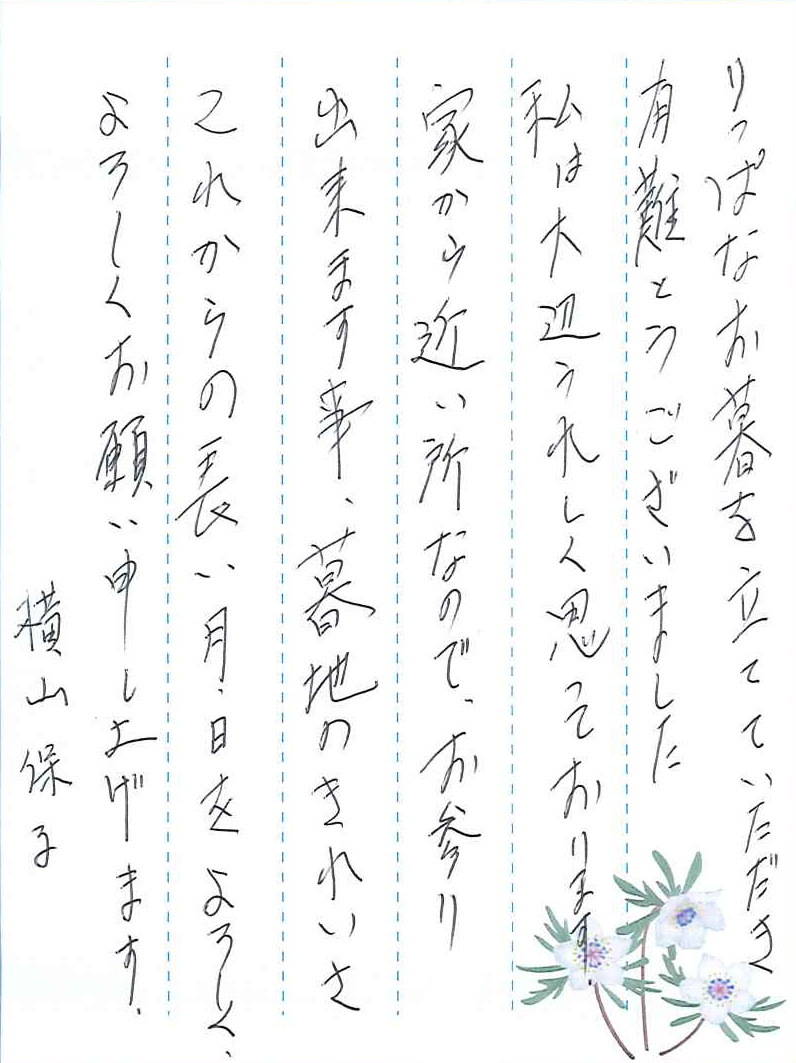 りっぱなお墓を立てていただき
有難とうございました
私は大辺うれしく思っております
家から近い所なので、お参り
出来ます事、墓地のきれいさ
これからの長い月、日をよろしく、
よろしくお願い申し上げます。
横山保子